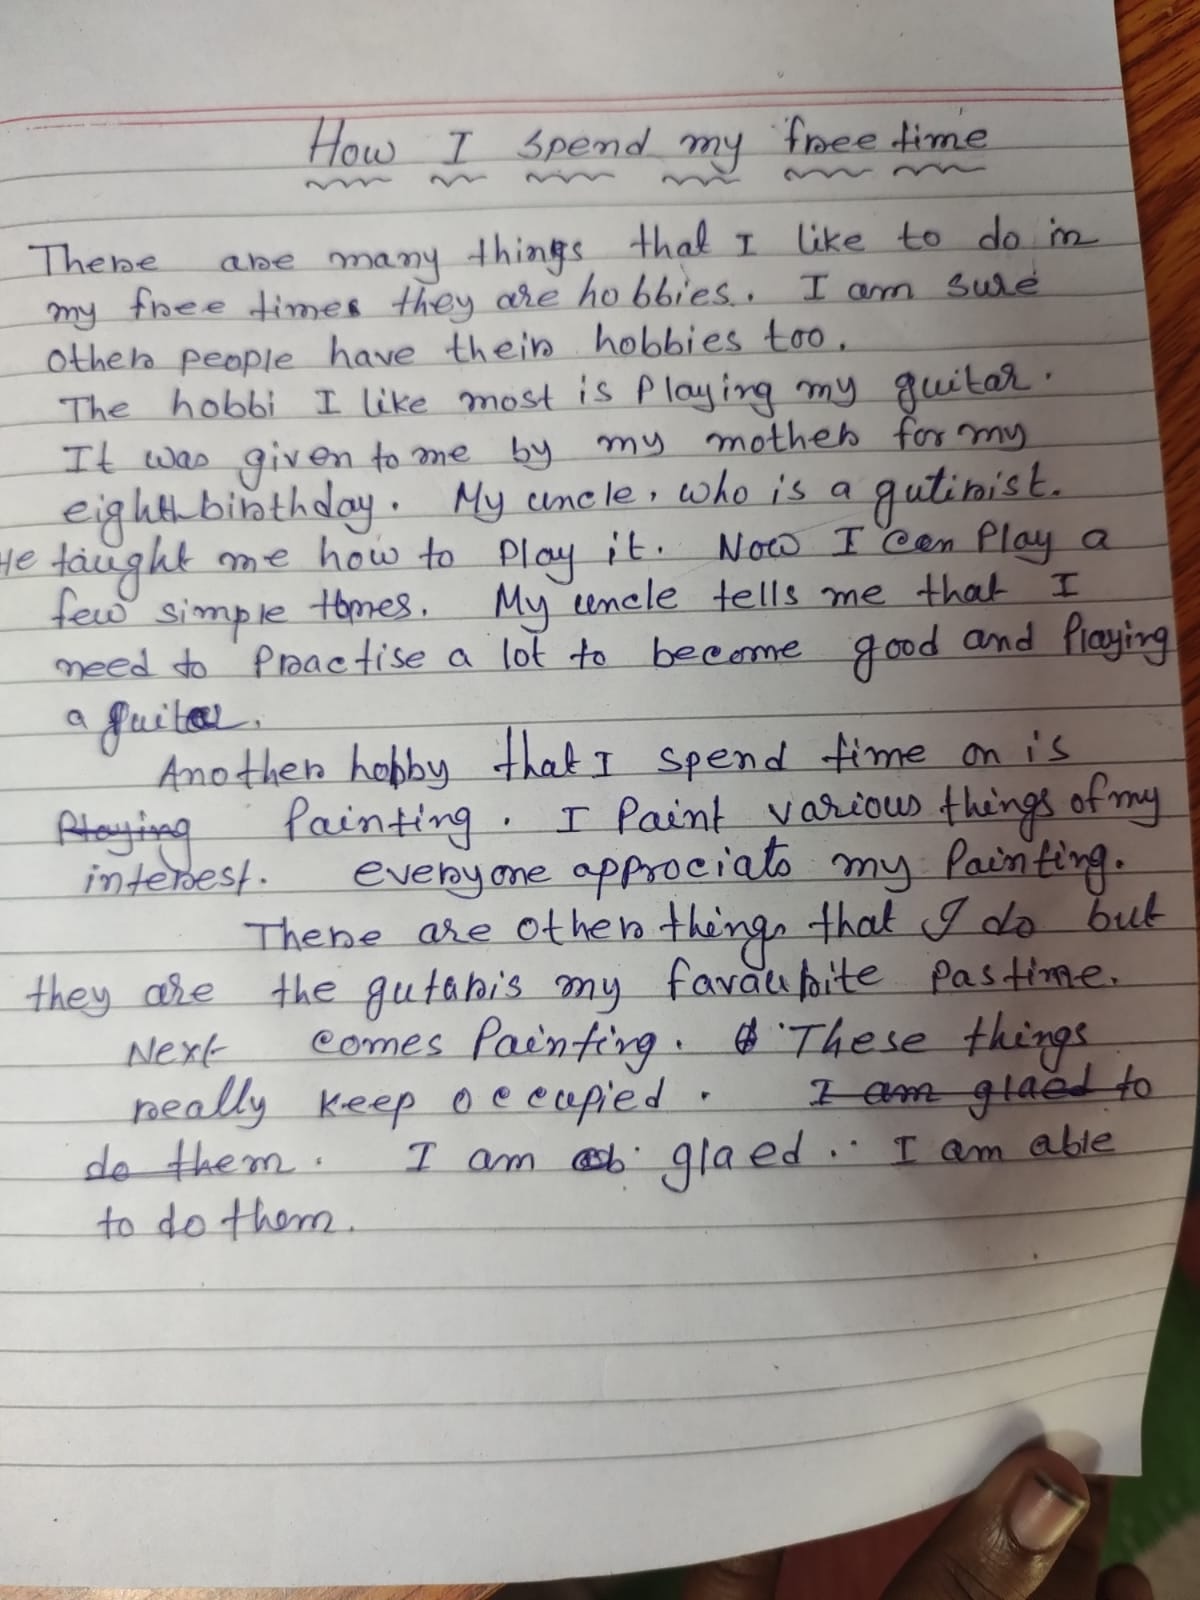 How I spend my free time
There are many things that I like to do in
my free times they are hobbies. I am sure
other people have their hobbies too.
The hobbi I like most is Playing my guitar.
It was given to me by my mother for my
eighth birthday. My uncle, who is a gutirist.
He taught me how to Play it. Now I can Play a
few simple My uncle tells me that I
need to Practise a lot to become good and Playing
a guitar.
Another hobby that I spend time on is
Playing Painting. I Paint various things of my
interest. everyone approciats my Painting.
There are other things that I do but
they are the gutaris my favaurite Pastime.
Next comes Painting. These things
really keep occupied. I am glaed to
do them. I am glaed. I am able
to do them.